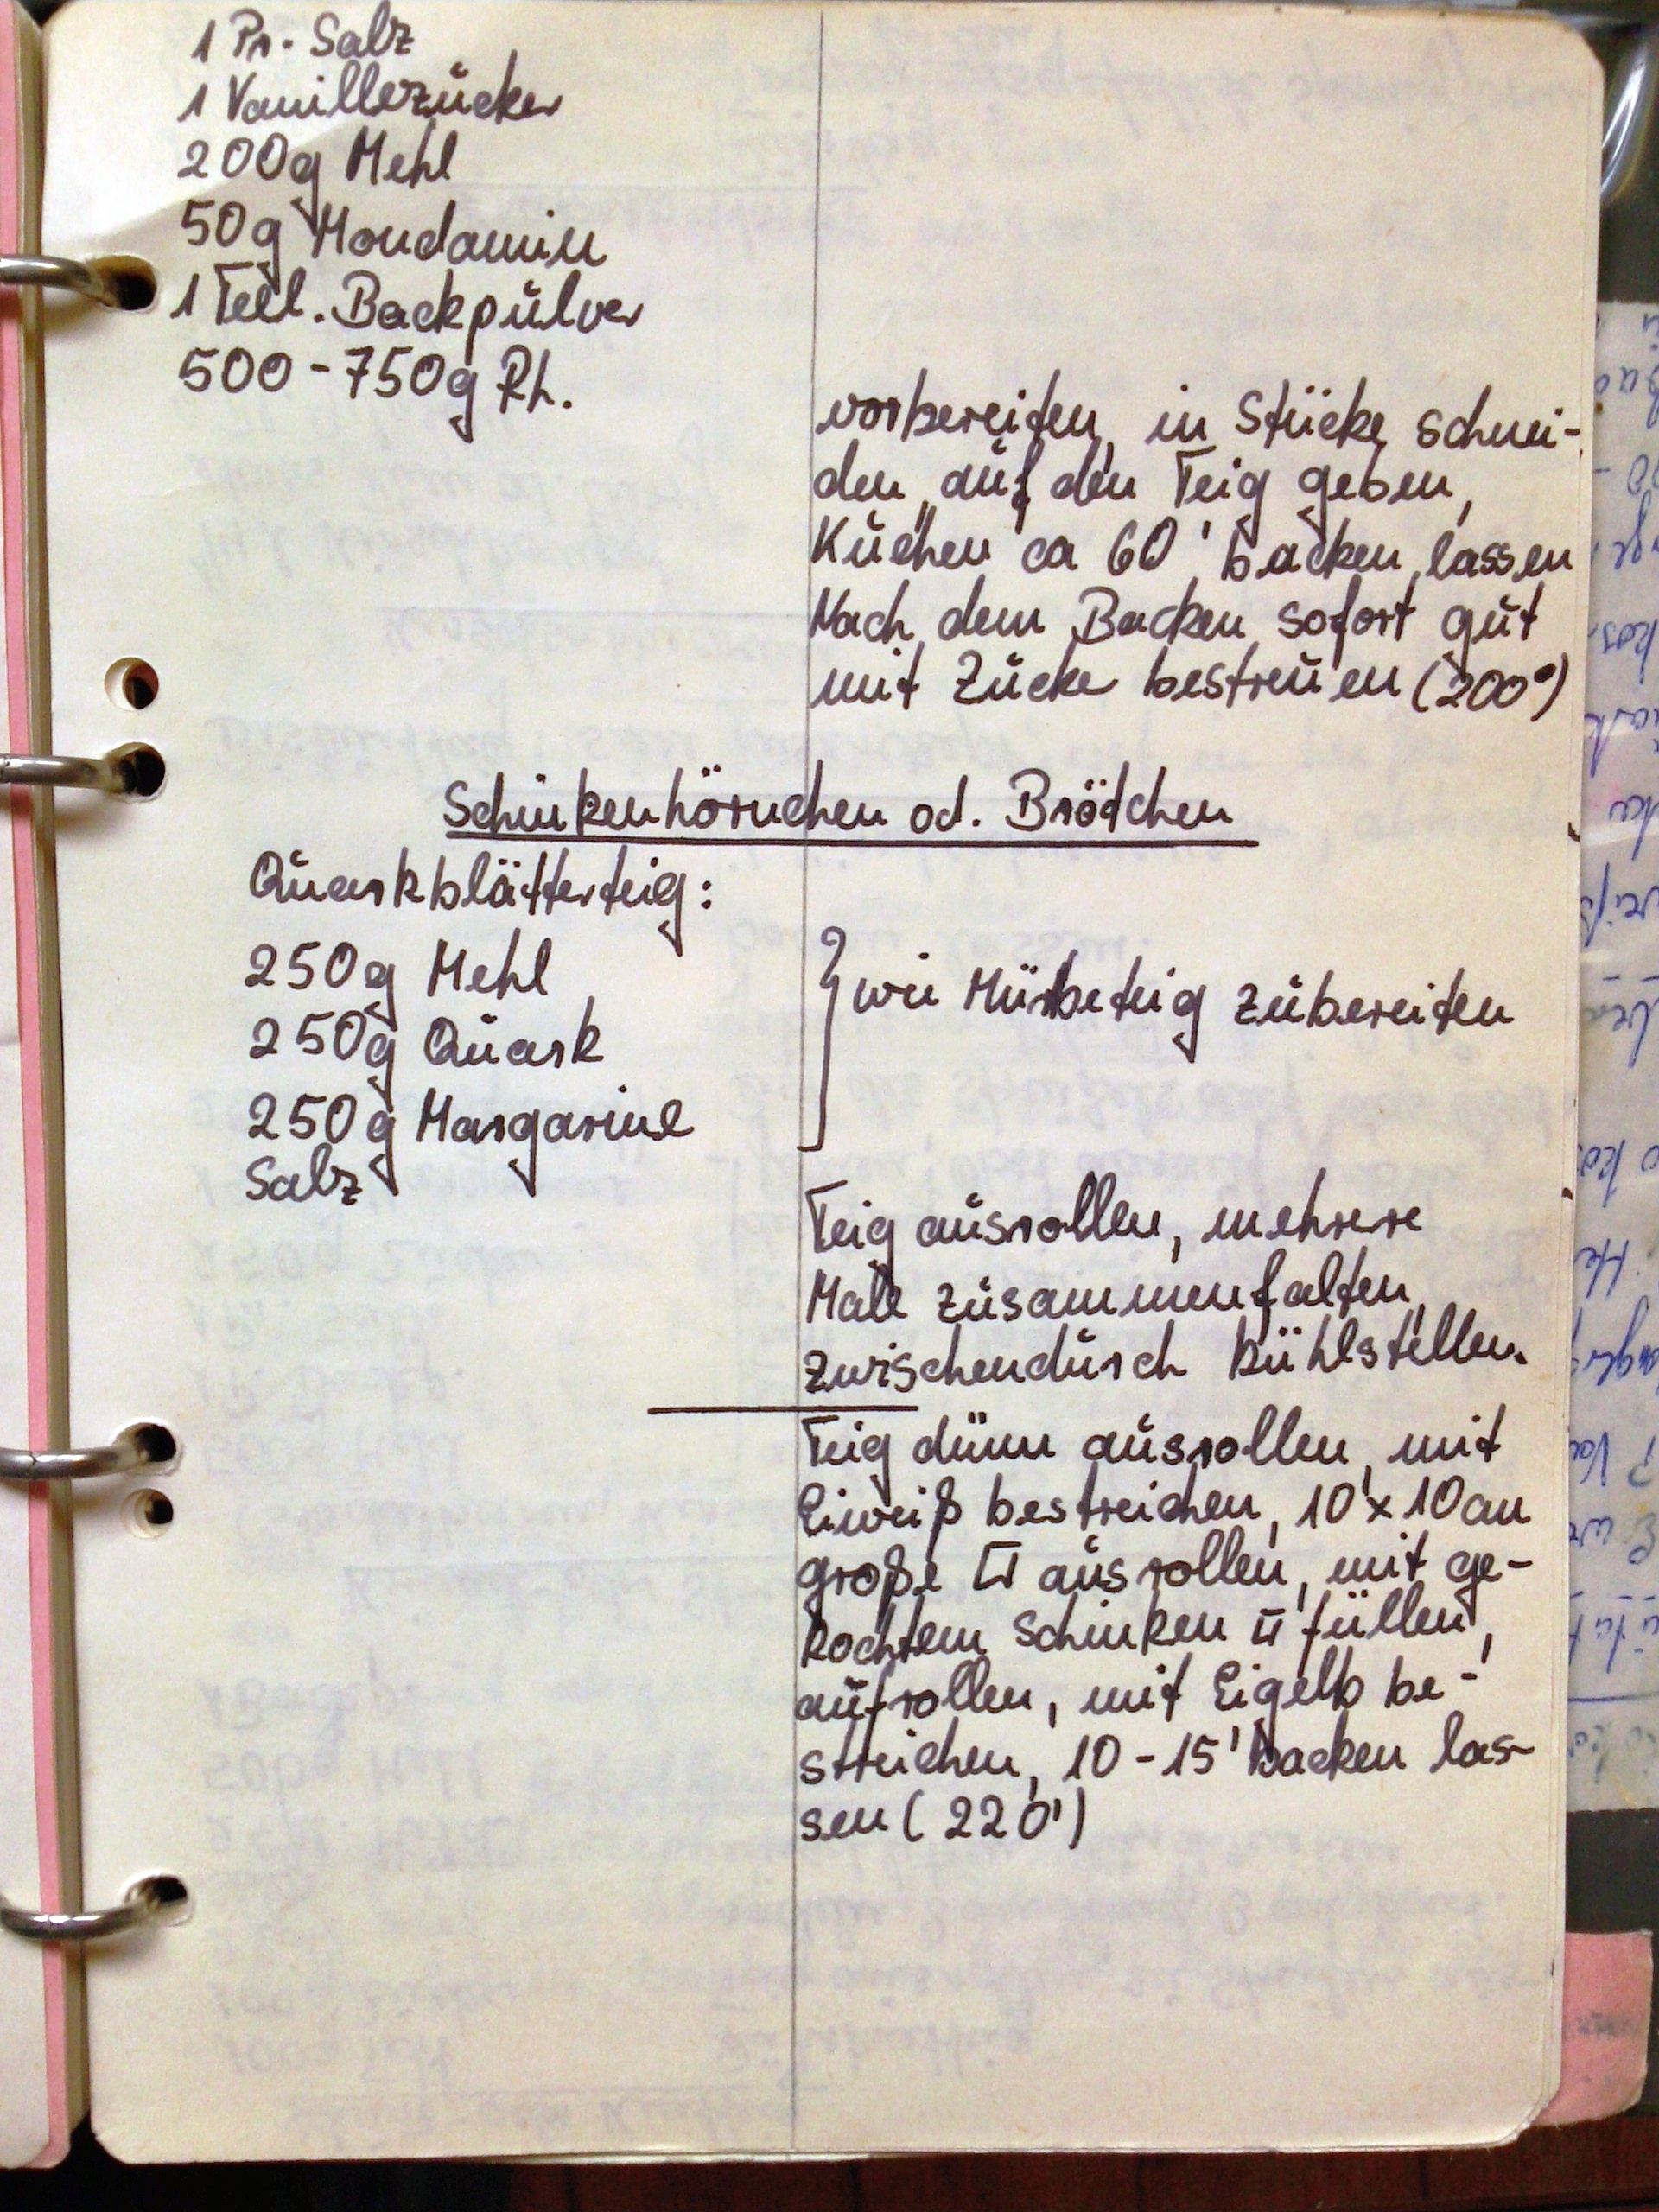 1 Pr. Salz
1 Vanillezucker
200g Mehl
50g Mondamin
1 Teel. Backpulver
500-750g Rh.
vorbereiten, in Stücke schnei-
den, auf den Teig geben,
Kuchen ca 60' backen lassen
Nach dem Backen sofort gut
mit Zucker bestreuen (200°)
Schinkenhörnchen od. Brötchen
Quarkblätterteig:
250g Mehl
250g Quark
250g Margarine
Salz
} wie Mürbeteig zubereiten
Teig ausrollen, mehrere
Male zusammenfalten,
zwischendurch kühlstellen.
Teig dünn ausrollen, mit
Eiweiß bestreichen, 10 x 10cm
große □ ausrollen, mit ge-
kochtem Schinken füllen,
aufrollen, mit Eigelb be-
streichen, 10-15' backen las-
sen (220')